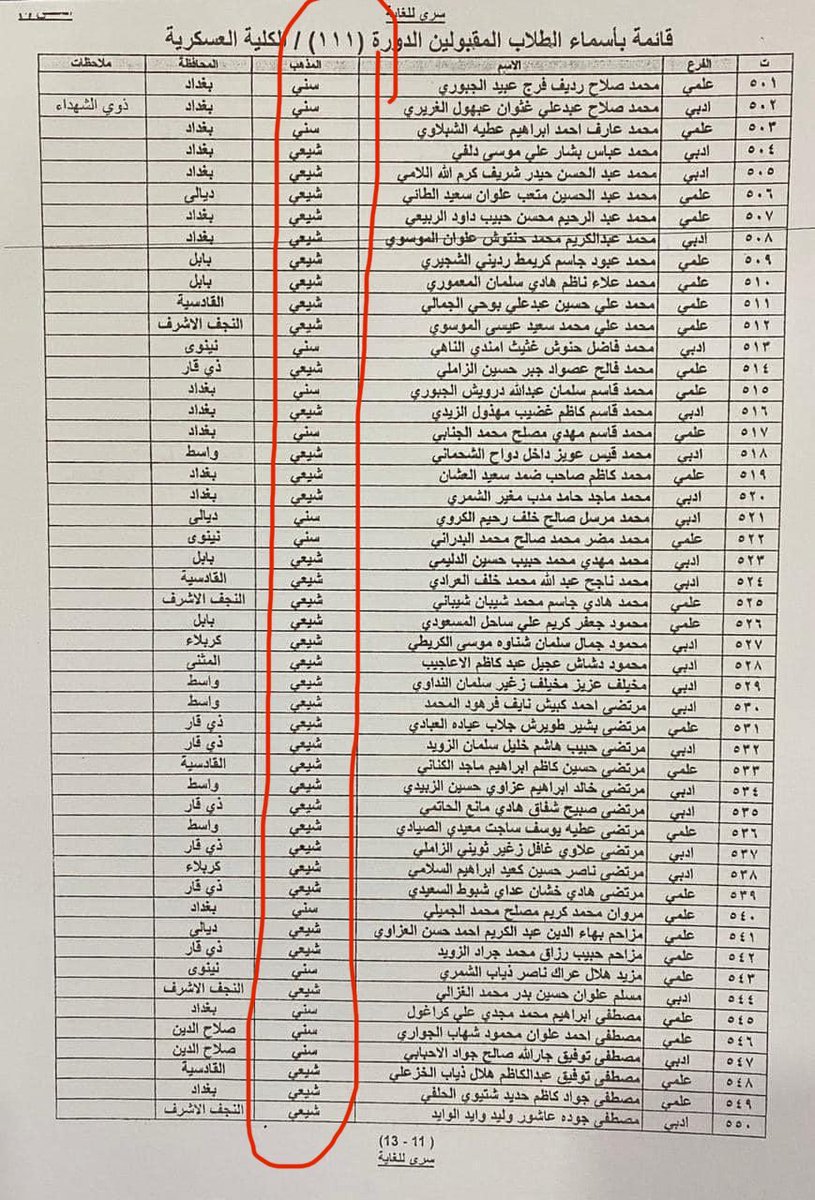 سري للغاية
قائمة بأسماء الطلاب المقبولين الدورة (١١١) / الكلية العسكرية
ت الفرع الاسم المذهب المحافظة ملاحظات
٥٠١ علمي محمد صلاح رديف فرج عبيد الجبوري سني بغداد
٥٠٢ ادبي محمد صلاح عبدعلي غثوان عبهول الغريري سني بغداد ذوي الشهداء
٥٠٣ علمي محمد عارف احمد ابراهيم عطيه الشبلاوي سني بغداد
٥٠٤ ادبي محمد عباس بشار علي موسى دلفي شيعي بغداد
٥٠٥ ادبي محمد عبد الحسن حيدر شريف كرم الله اللامي شيعي بغداد
٥٠٦ علمي محمد عبد الحسين متعب علوان سعيد الطائي شيعي ديالى
٥٠٧ علمي محمد عبد الرحيم محسن حبيب داود الربيعي شيعي بغداد
٥٠٨ ادبي محمد عبدالكريم محمد حنتوش علوان الموسوي شيعي بغداد
٥٠٩ علمي محمد عبود جاسم كريمط رديني الشجيري شيعي بابل
٥١٠ علمي محمد علاء ناظم هادي سلمان المعموري شيعي بابل
٥١١ علمي محمد علي حسين عبدعلي بوحي الجمالي شيعي القادسية
٥١٢ علمي محمد علي محمد سعيد عيسى الموسوي شيعي النجف الاشرف
٥١٣ ادبي محمد فاضل حنوش غثيث امندي الناهي سني نينوى
٥١٤ علمي محمد فالح عصواد جبر حسين الزاملي شيعي ذي قار
٥١٥ علمي محمد قاسم سلمان عبدالله درويش الجبوري سني بغداد
٥١٦ ادبي محمد قاسم كاظم غضيب مهذول الزيدي شيعي بغداد
٥١٧ علمي محمد قاسم مهدي مصلح محمد الجنابي سني بغداد
٥١٨ ادبي محمد قيس عويز داخل دواح الشحماني شيعي واسط
٥١٩ علمي محمد كاظم صاحب ضمد سعيد العشان شيعي بغداد
٥٢٠ ادبي محمد ماجد حامد مدب مغير الشمري شيعي بغداد
٥٢١ ادبي محمد مرسل صالح خلف رحيم الكروي سني ديالى
٥٢٢ علمي محمد مضر محمد صالح محمد البدراني سني نينوى
٥٢٣ ادبي محمد مهدي محمد حبيب حسين الدليمي شيعي بابل
٥٢٤ ادبي محمد ناجح عبد الله محمد خلف العرادي شيعي القادسية
٥٢٥ علمي محمد هادي جاسم محمد شيبان شيباني شيعي النجف الاشرف
٥٢٦ علمي محمود جعفر كريم علي ساحل المسعودي شيعي بابل
٥٢٧ ادبي محمود جمال سلمان شناوه موسى الكريطي شيعي كربلاء
٥٢٨ ادبي محمود دشاش عجيل عبد كاظم الاعاجيب شيعي المثنى
٥٢٩ ادبي مخيلف عزيز مخيلف زغير سلمان النداوي شيعي واسط
٥٣٠ ادبي مرتضى احمد كبيش نايف فرهود المحمد شيعي واسط
٥٣١ علمي مرتضى بشير طويرش جلاب عياده العبادي شيعي ذي قار
٥٣٢ ادبي مرتضى حبيب هاشم خليل سلمان الزويد شيعي ذي قار
٥٣٣ علمي مرتضى حسين كاظم ابراهيم ماجد الكناني شيعي القادسية
٥٣٤ ادبي مرتضى خالد ابراهيم عزاوي حسين الزبيدي شيعي واسط
٥٣٥ ادبي مرتضى صبيح شفاق هادي مانع الحاتمي شيعي ذي قار
٥٣٦ علمي مرتضى عطيه يوسف ساجت معيدي الصيادي شيعي واسط
٥٣٧ ادبي مرتضى علاوي غافل زغير ثويني الزاملي شيعي ذي قار
٥٣٨ ادبي مرتضى ناصر حسين كعيد ابراهيم السلامي شيعي كربلاء
٥٣٩ علمي مرتضى هادي خشان عداي شبوط السعيدي شيعي ذي قار
٥٤٠ علمي مروان محمد كريم مصلح محمد الجميلي سني بغداد
٥٤١ علمي مزاحم بهاء الدين عبد الكريم احمد حسن العزاوي شيعي ديالى
٥٤٢ علمي مزاحم حبيب رزاق محمد جراد الزويد شيعي ذي قار
٥٤٣ علمي مزيد هلال عراك ناصر ذياب الشمري سني نينوى
٥٤٤ ادبي مسلم علوان حسين بدر محمد الغزالي شيعي النجف الاشرف
٥٤٥ علمي مصطفى ابراهيم محمد مجدي علي كراغول سني بغداد
٥٤٦ علمي مصطفى احمد علوان محمود شهاب الجواري سني صلاح الدين
٥٤٧ ادبي مصطفى توفيق جارالله صالح جواد الاحبابي سني صلاح الدين
٥٤٨ علمي مصطفى توفيق عبدالكاظم هلال ذياب الخزعلي شيعي القادسية
٥٤٩ علمي مصطفى جواد كاظم حديد شتيوي الحلفي شيعي بغداد
٥٥٠ ادبي مصطفى جوده عاشور وليد وايد الوايد شيعي النجف الاشرف
(13 - 11)
سري للغاية